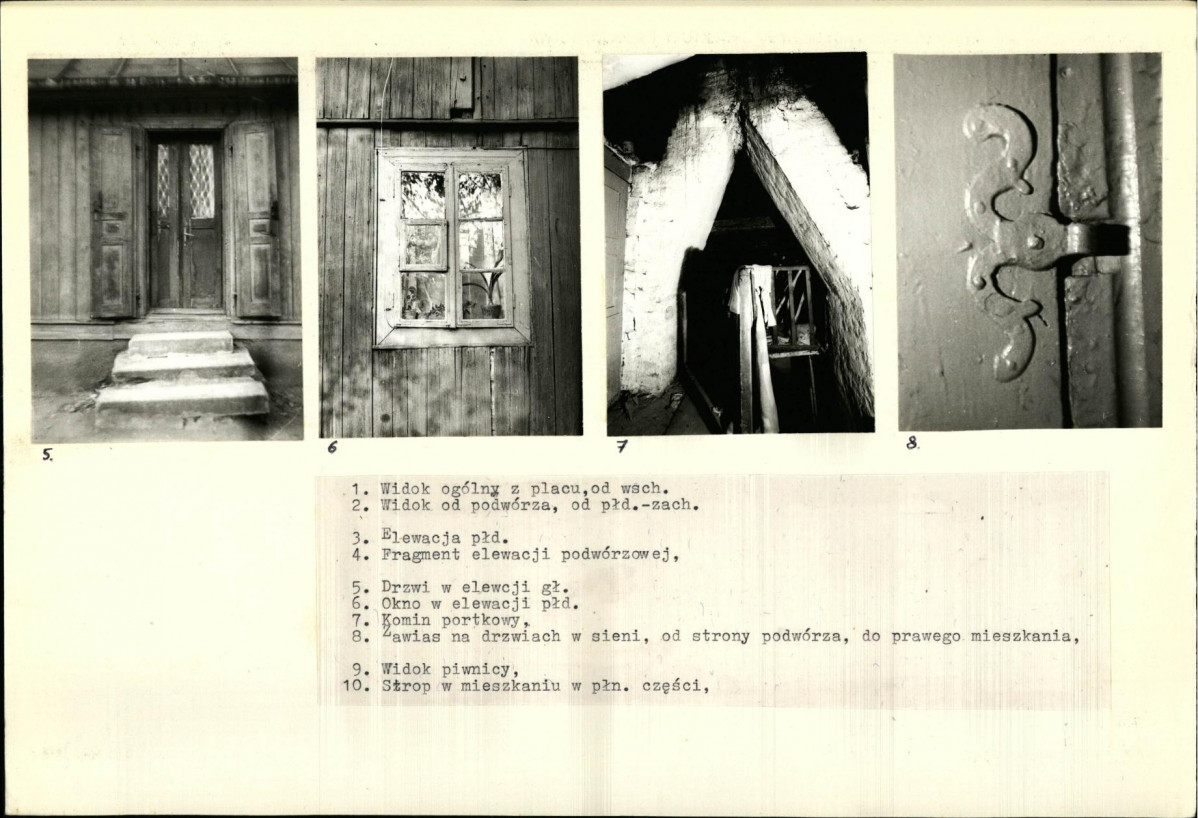 5.
6
7
8.
1. Widok ogólny z placu,od wsch.
2. Widok od podwórza, od płd.-zach.
3. Elewacja płd.
4. Fragment elewacji podwórzowej,
5. Drzwi w elewcji gł.
6. Okno w elewacji płd.
7. Komin portkowy,
8. Zawias na drzwiach w sieni, od strony podwórza, do prawego mieszkania,
9. Widok piwnicy,
10. Strop w mieszkaniu w płn. części,